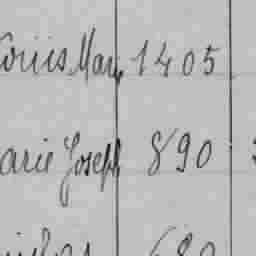 Louis Mary 1405
Marie Joseph 890
680